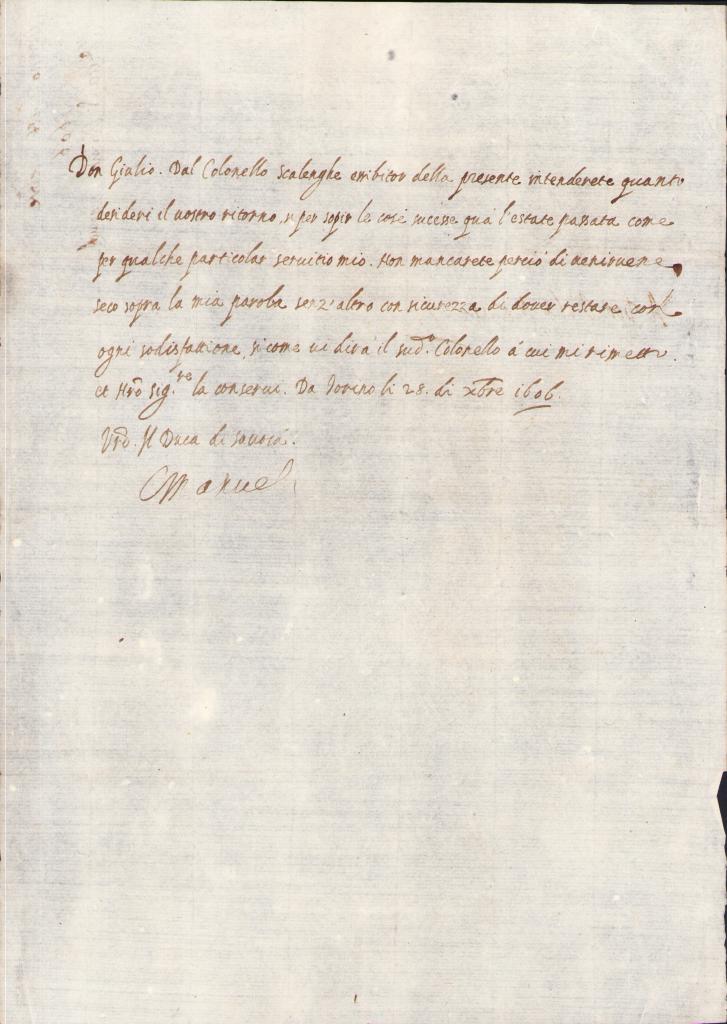 Don Giulio. Dal Colonello Scalenghe exibitor della presente intenderete quanto
desideri il vostro ritorno, si per sopir le cose sucesse quà l'estate passata come
per qualche particolar servitio mio. Non mancarete perciò di venirvene
seco sopra la mia parola senz'altro con sicurezza di dover restare con
ogni sodisfattione, si come vi dirà il sud.º Colonello à cui mi rimetto.
et Nrõ Sig.re la conservi. Da Torino li 28. di xbre 1606.
Vrõ. Il Duca di Savoia.